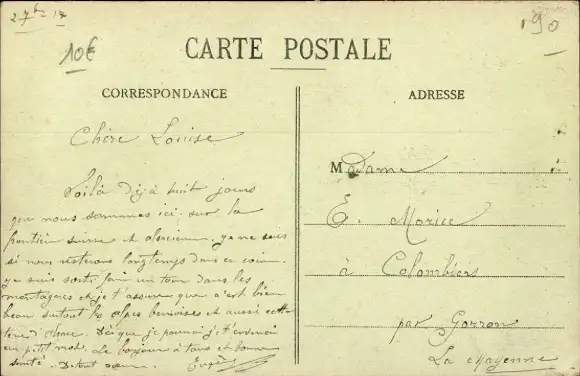 2 7bre 17
10€
190
CARTE POSTALE
CORRESPONDANCE
ADRESSE
Chère Louise
Voilà déjà huit jours
que nous sommes ici sur la
frontière suisse et alsacienne. je ne sais
si nous resterons longtemps dans ce coin.
je suis sorti faire un tour dans les
montagnes et je t'assure que c'est bien
beau surtout les alpes bernoises et aussi cette
terre d'alsace. Dès que je pourrai je t'enverrai
un petit mot. Le bonjour à tous et bonne
santé. De tout coeur. Eugène
Madame
E. Morice
à Colombiers
par Gorron
La Mayenne